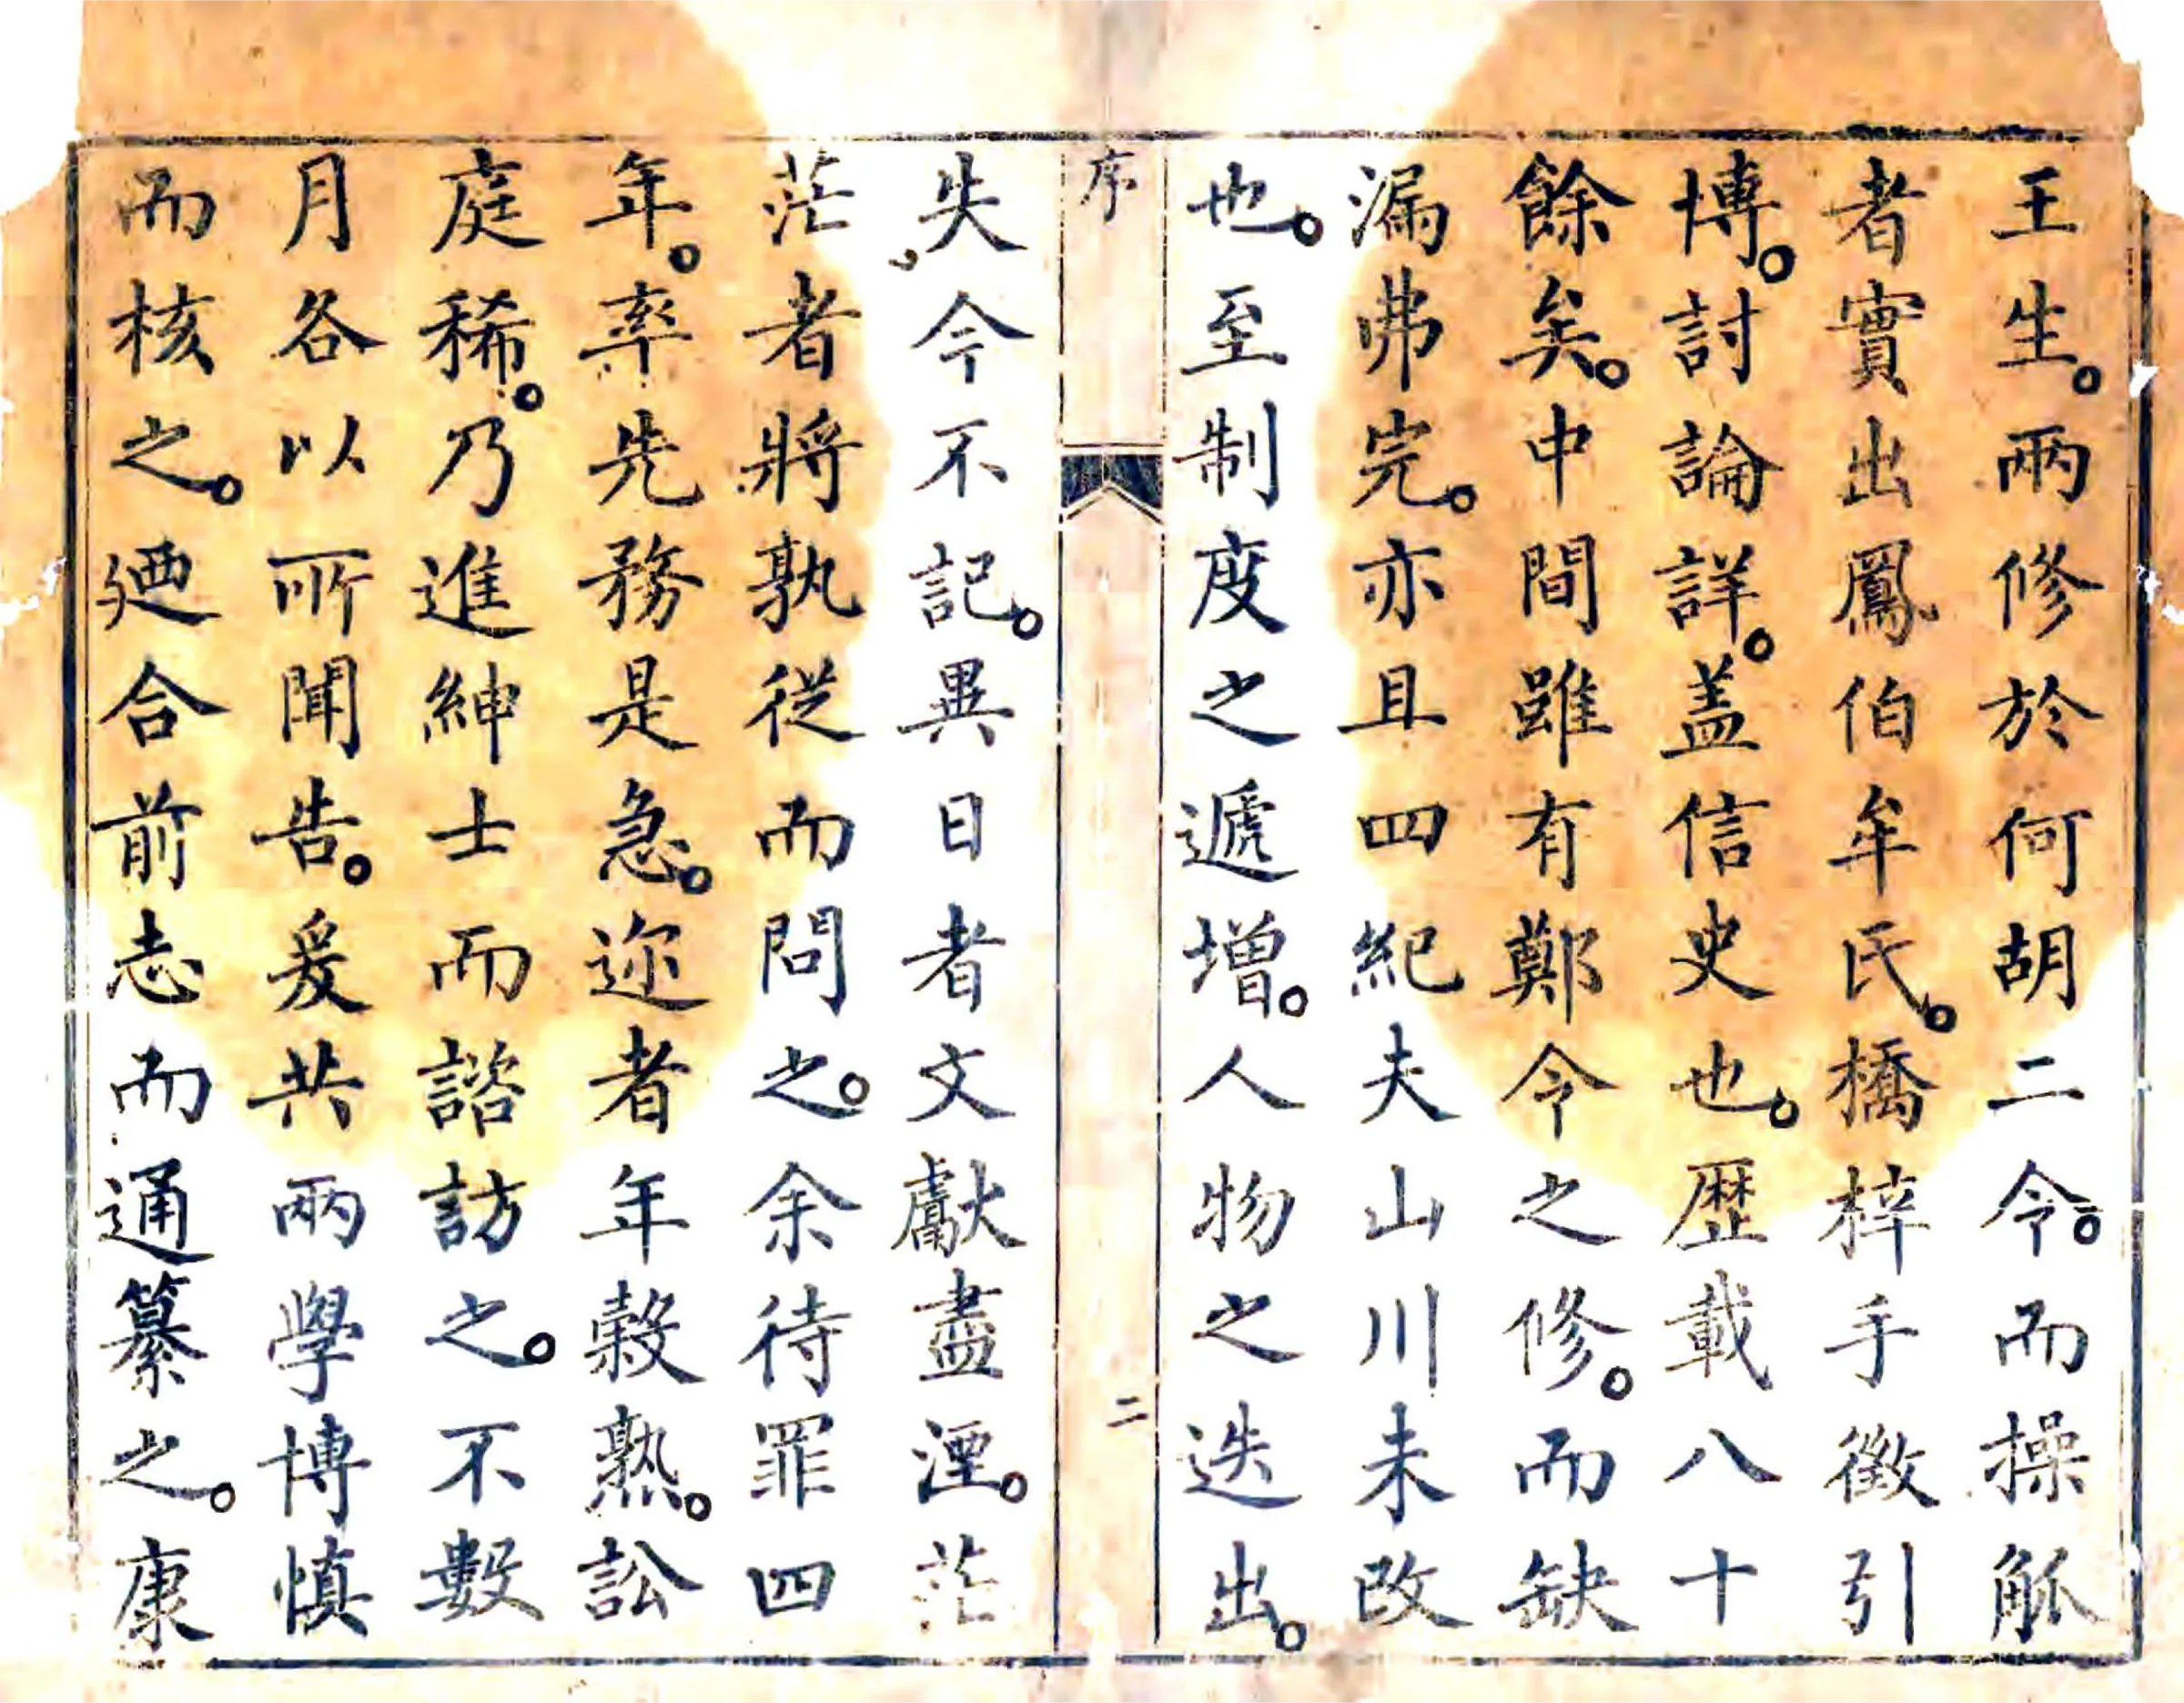 王生。兩修於何胡二令。而操觚
者實出鳳伯牟氏。橋梓手徵引
博。討論詳。盖信史也。歷載八十
餘矣。中間雖有鄭令之修。而缺
漏弗完。亦且四紀夫山川未改
也。至制度之遞增。人物之迭出。
序
二
失今不記。異日者文獻盡湮。茫
茫者將孰從而問之。余待罪四
年。率先務是急。迩者年穀熟。訟
庭稀。乃進紳士而諮訪之。不數
月各以所聞告。爰共兩學博慎
而核之。廼合前志而通纂之。康